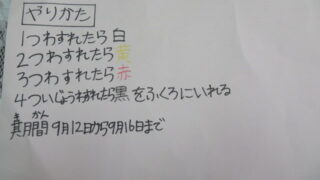 やりかた
1つわすれたら白
2つわすれたら黄
3つわすれたら赤
4ついじょうわすれたら黒をふくろにいれる
きかん
期間9月12日から9月16日まで